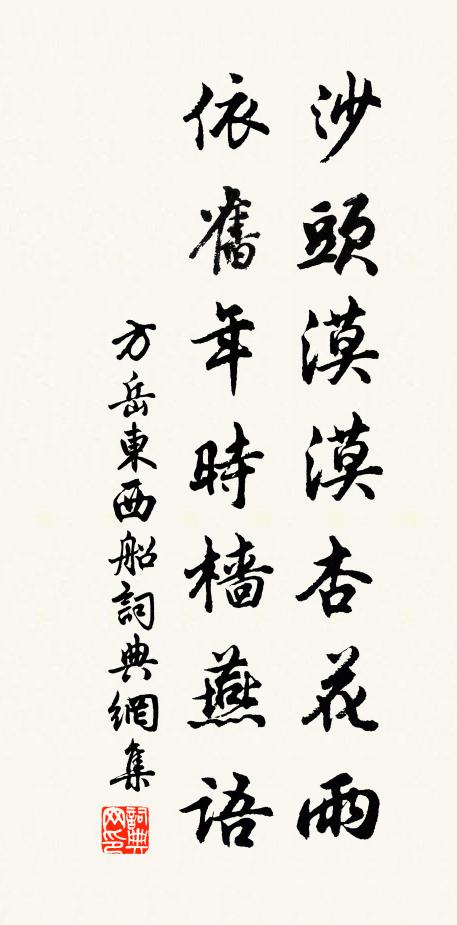 沙頭漠漠杏花雨
依舊年時檣燕語
方岳東西船詞典網集
詞典
网印